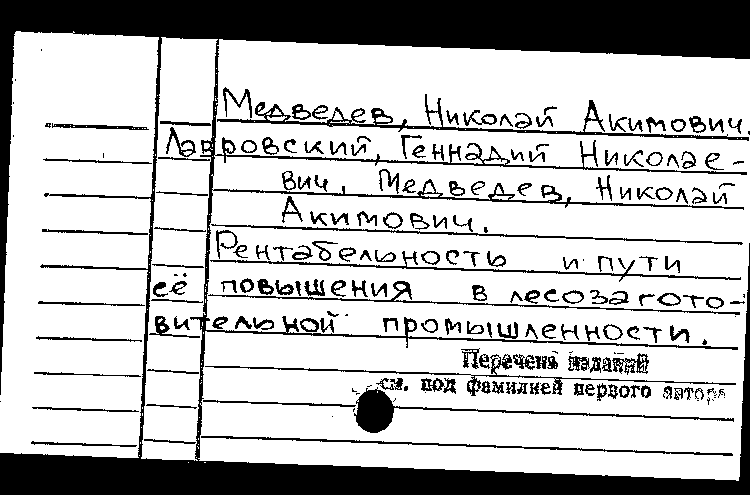 Медведев, Николай Акимович.
Лавровский, Геннадий Николае-
вич, Медведев, Николай
Акимович.
Рентабельность и пути
её повышения в лесозагото-
вительной промышленности.
Перечень изданий
см. под фамилией первого автора